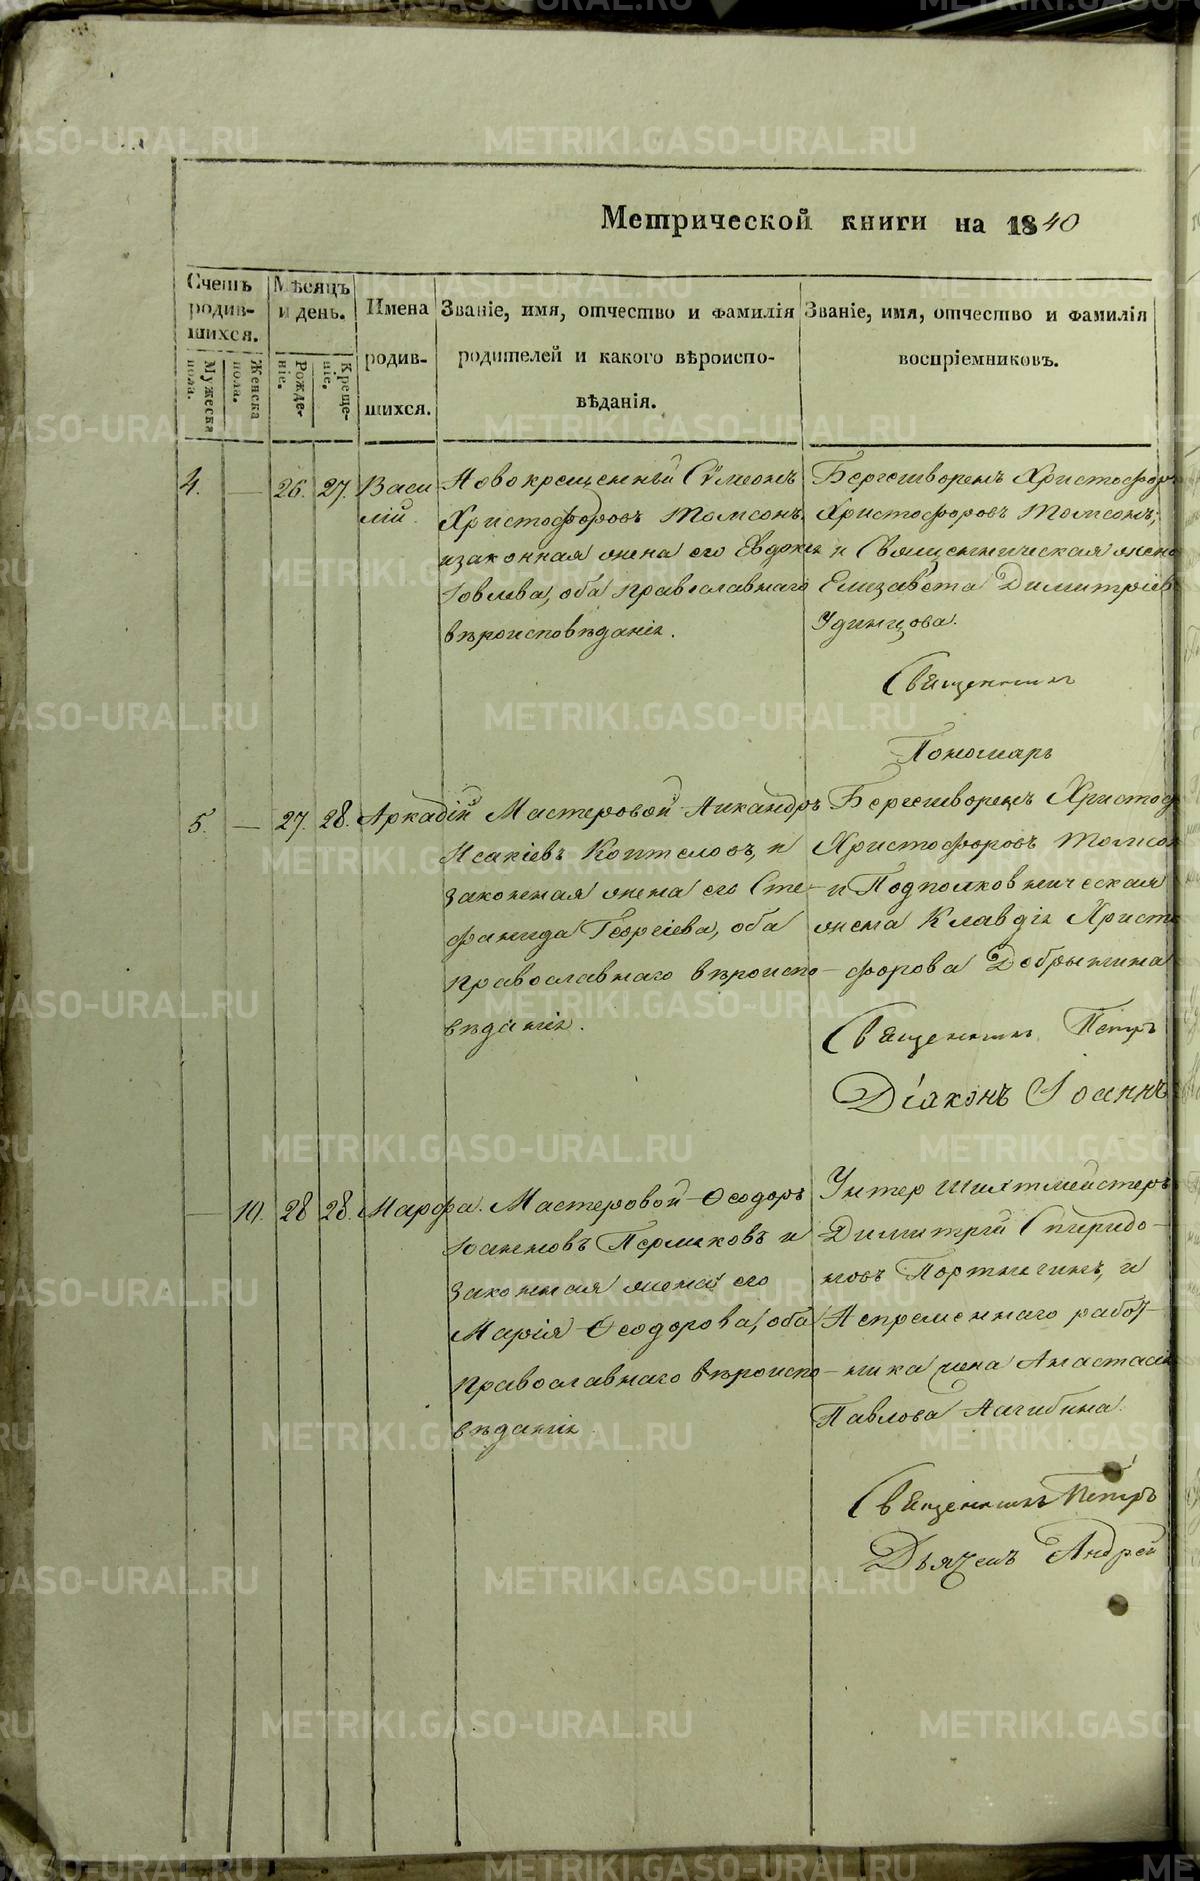 Метрической книги на 1840
Счетъ родив-шихся.
Мужеска пола.
Женска пола.
Мѣсяцъ и день.
Рожде-ніе.
Креще-ніе.
Имена родив-шихся.
Званіе, имя, отчество и фамилія
родителей и какого вѣроиспо-
вѣданія.
Званіе, имя, отчество и фамилія
воспріемниковъ.
4. — 26. 27. Васи
лій.
Новокрещенный Сѵмеонъ
Христофоровъ Томсонъ,
и законная жена его Евдокія
Іовлева, оба православнаго
вѣроисповѣданія.
Бергешворенъ Христофоръ
Христофоровъ Томсонъ,
и Священническая жена
Елизавета Димитріев
Удинцова.
Священникъ
Пономарь
5. — 27. 28. Аркадій
Мастеровой Никандръ
Исакіевъ Коптеловъ, и
законная жена его Сте-
фанида Георгіева, оба
православнаго вѣроиспо-
вѣданія.
Бергешворенъ Христоф
Христофоровъ Томсон
и Подполковническая
жена Клавдія Христо
форова Добрынина
Священникъ Петръ
Діаконъ Іоаннъ
— 10. 28 28. Марфа.
Мастеровой Ѳеодоръ
Іоанновъ Пермяковъ и
законная жена его
Марія Ѳеодорова, оба
православнаго вѣроиспо-
вѣданія
Унтер Шихтмейстеръ
Димитрій Спиридо-
новъ Портнягинъ, и
Непременнаго работ-
ника жена Анастасія
Павлова
Священникъ Петръ
Дьячекъ Андрей
METRIKI.GASO-URAL.RU